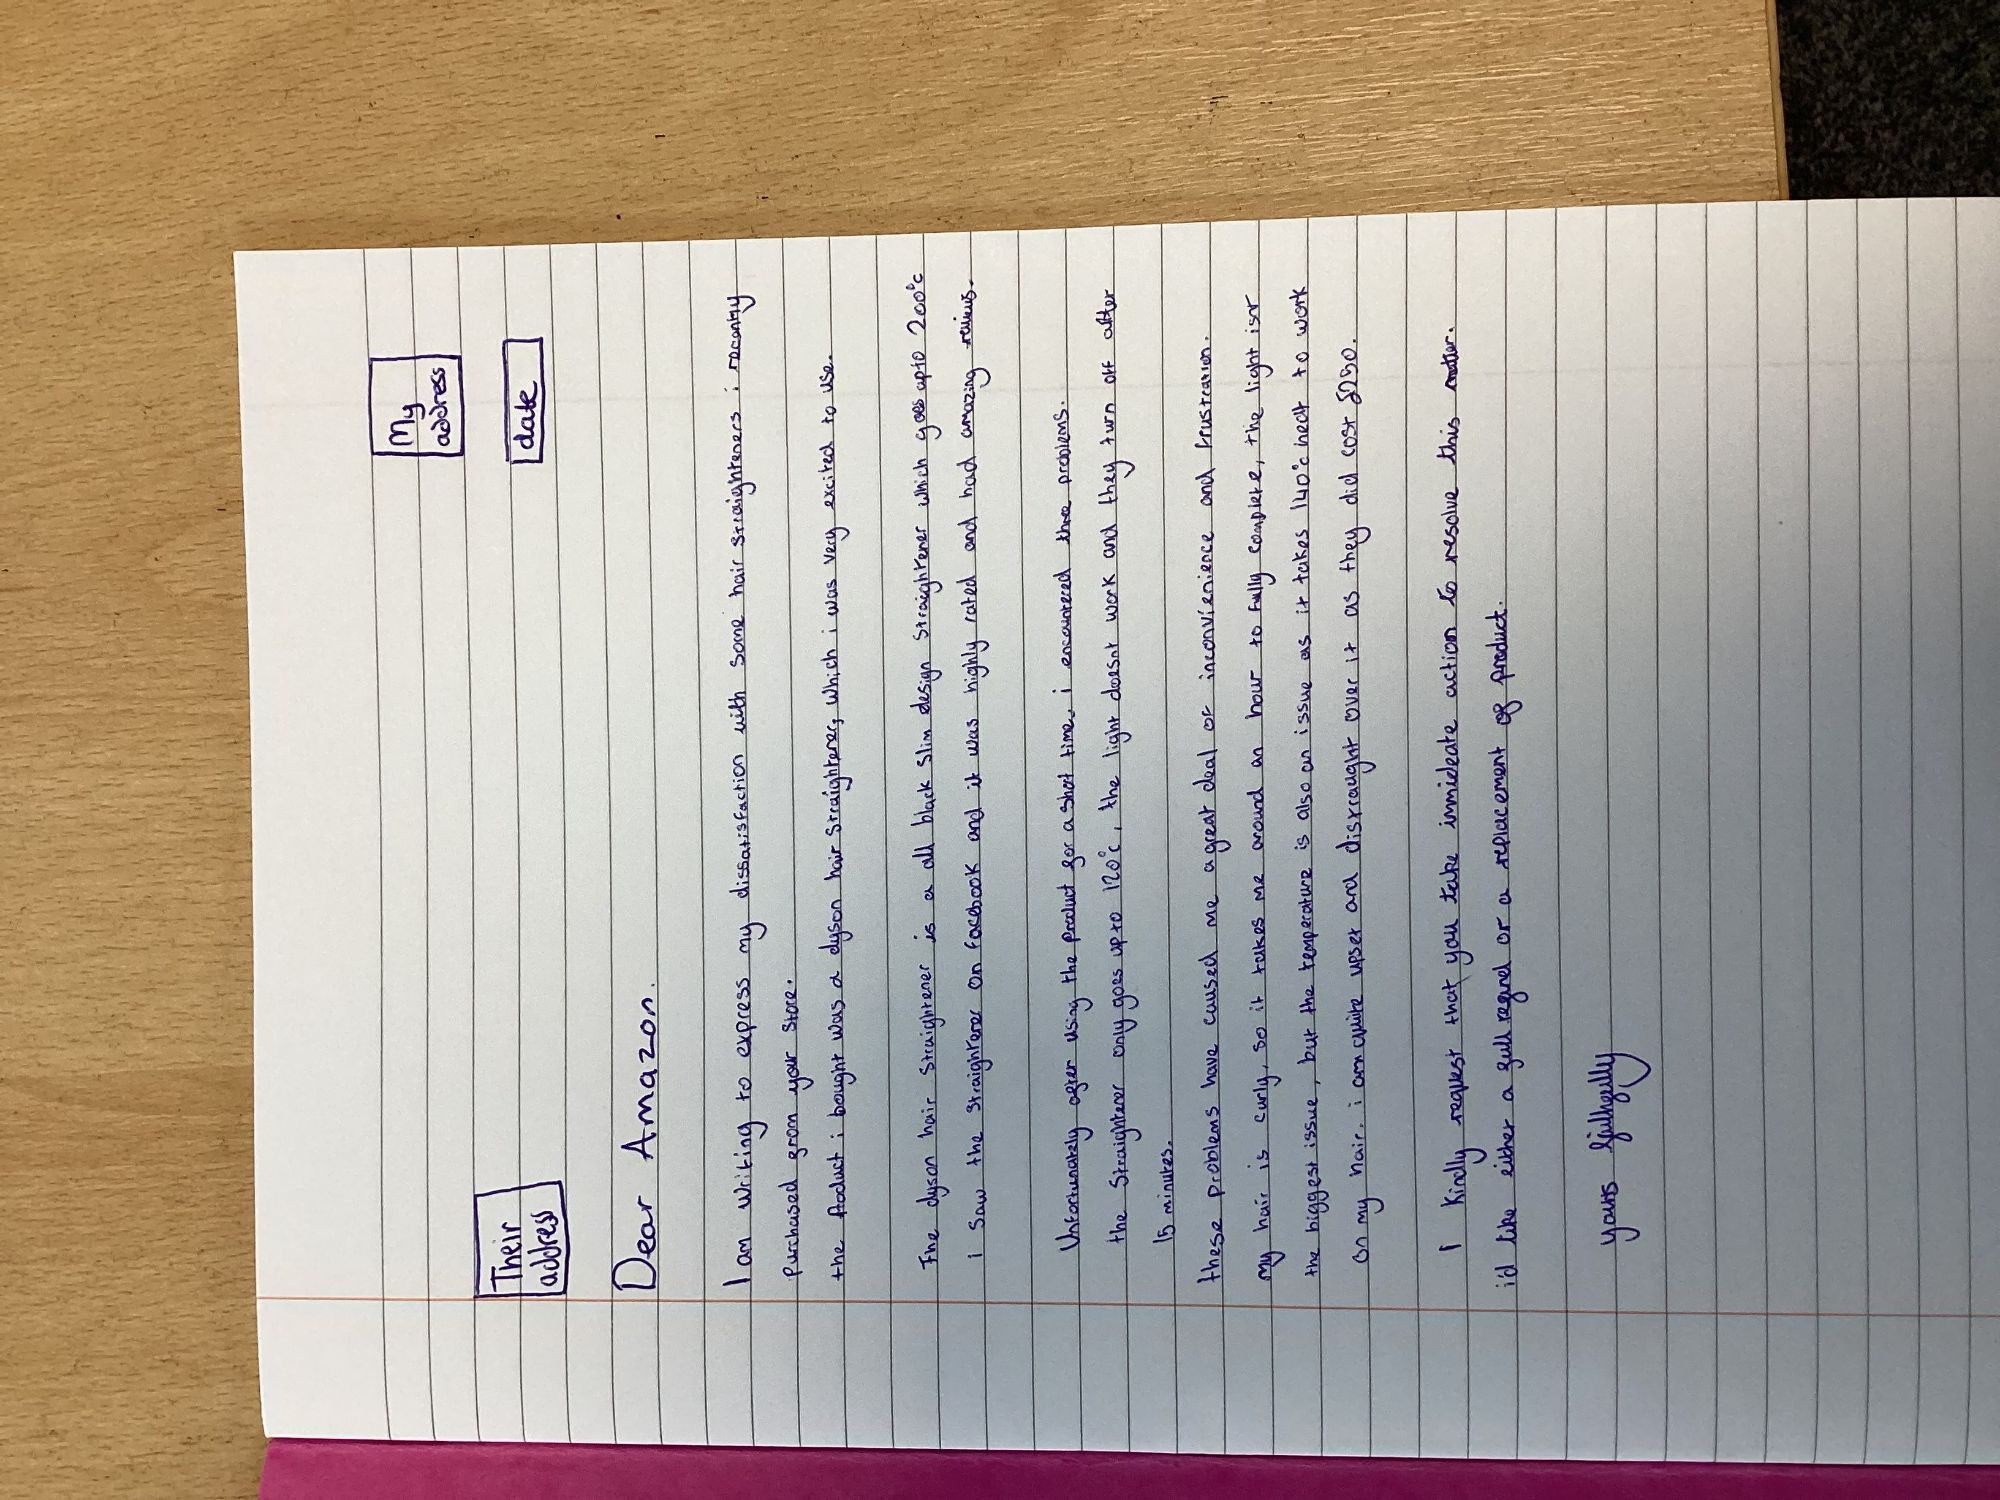 My
address
Their
address
date
Dear Amazon.
I am writing to express my dissatisfaction with some hair straighteners i recantly
purchased from your store.
the product i bought was a dyson hair straightener, which i was very excited to use.
The dyson hair straightener is a all black slim design straightener which goes upto 200°c
i saw the straightener on facebook and it was highly rated and had amazing reviews.
Unfortunately after using the product for a short time, i encountered three problems.
the straightener only goes upto 120°c, the light doesnt work and they turn off after
15 minutes.
these problems have caused me a great deal of inconvienience and frustration.
My hair is curly, so it takes me around an hour to fully complete, the light isnt
the biggest issue, but the temperature is also an issue as it takes 140°c heat to work
on my hair. i am quite upset and distraught over it as they did cost £250.
I Kindly request that you take immideate action to resolve this matter.
i'd like either a full regund or a replacement of product.
yours faithgully